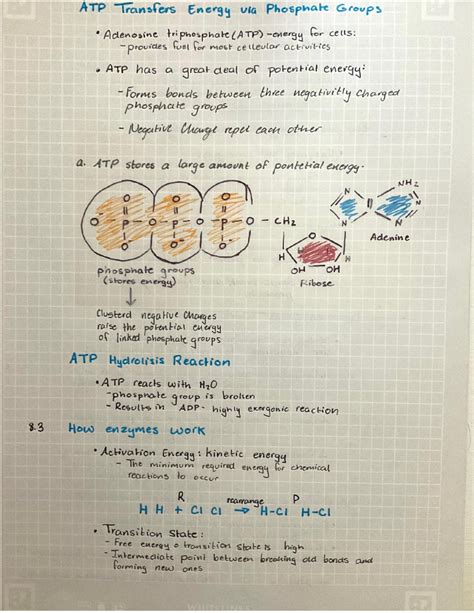 ATP Transfers Energy via Phosphate Groups
• Adenosine triphosphate (ATP) - energy for cells:
- provides fuel for most cellular activities
• ATP has a great deal of potential energy:
- Forms bonds between three negativitly charged
phosphate groups
- Negative Charge repel each other
a. ATP stores a large amount of pontetial energy.
O O O
O⁻ P O P O P O - CH₂
O O O
N N NH₂
N N
Adenine
O
H H
OH OH
Ribose
phosphate groups
(stores energy)
Clusterd negative charges
raise the potential energy
of linked phosphate groups
ATP Hydrolisis Reaction
• ATP reacts with H₂O
- phosphate group is broken
- Results in ADP - highly exergonic reaction
8.3 How enzymes work
• Activation Energy: kinetic energy
- The minimum required energy for chemical
reactions to occur
R rearrange P
H H + Cl Cl → H-Cl H-Cl
• Transition State:
- Free energy @ transition state is high
- Intermediate point between breaking old bonds and
forming new ones